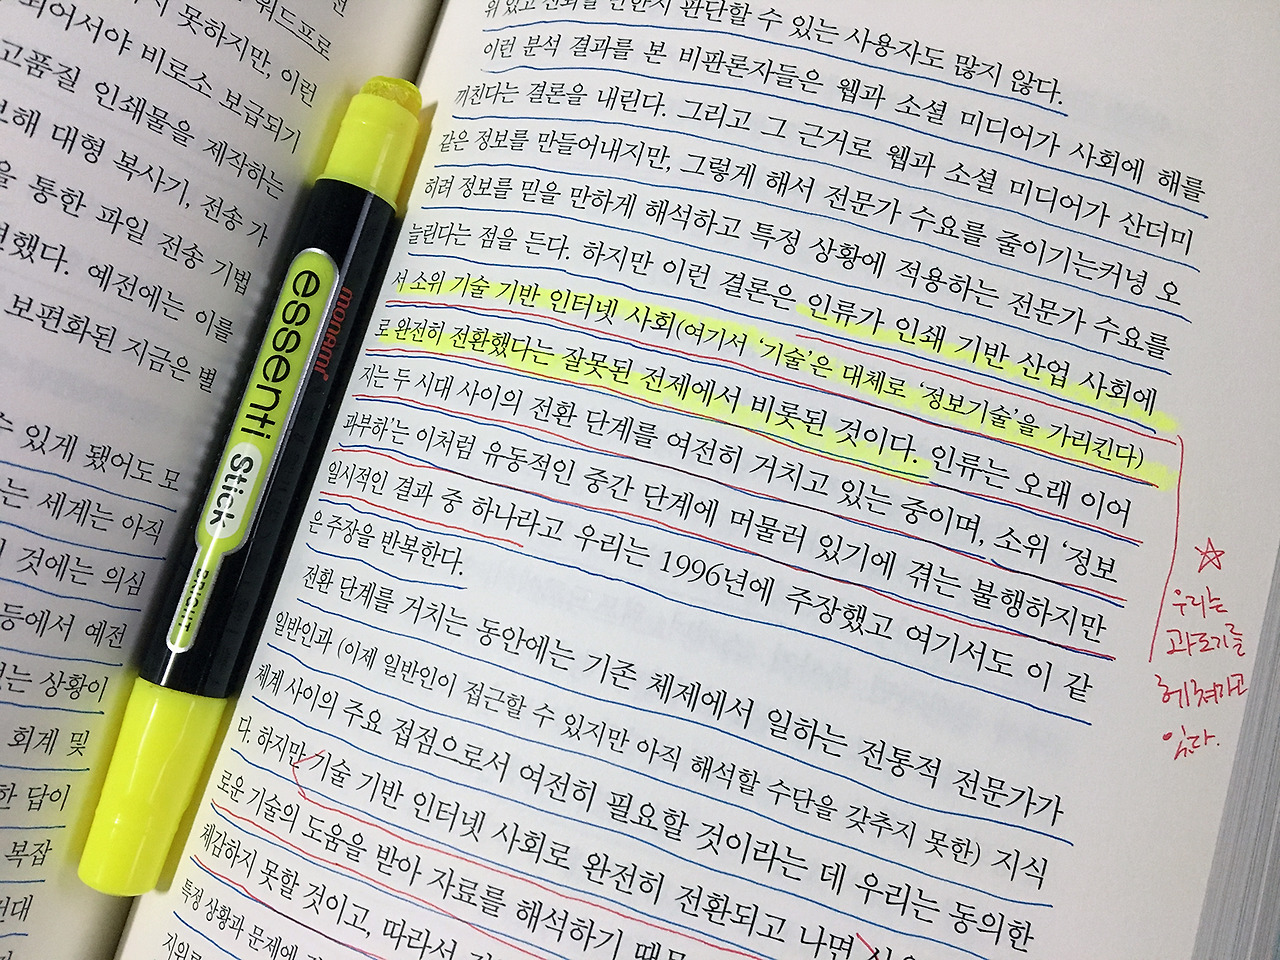 전
워드프로
지 못하지만, 이런
되어서야 비로소 보급되기
고품질 인쇄물을 제작하는
해 대형 복사기, 전송 가
을 통한 파일 전송 기법
변했다. 예전에는 이를
보편화된 지금은 별
수 있게 됐어도 모
는 세계는 아직
것에는 의심
등에서 예전
는 상황이
회계 및
한 답이
복잡
대
monami
essenti
Stick
BRIGHT
위 있고 신뢰할 만한지 판단할 수 있는 사용자도 많지 않다.
이런 분석 결과를 본 비판론자들은 웹과 소셜 미디어가 사회에 해를
끼친다는 결론을 내린다. 그리고 그 근거로 웹과 소셜 미디어가 산더미
같은 정보를 만들어내지만, 그렇게 해서 전문가 수요를 줄이기는커녕 오
히려 정보를 믿을 만하게 해석하고 특정 상황에 적용하는 전문가 수요를
늘린다는 점을 든다. 하지만 이런 결론은 인류가 인쇄 기반 산업 사회에
서 소위 기술 기반 인터넷 사회(여기서 ‘기술’은 대체로 ‘정보기술’을 가리킨다)
로 완전히 전환했다는 잘못된 전제에서 비롯된 것이다. 인류는 오래 이어
지는 두 시대 사이의 전환 단계를 여전히 거치고 있는 중이며, 소위 ‘정보
과부하’는 이처럼 유동적인 중간 단계에 머물러 있기에 겪는 불행하지만
일시적인 결과 중 하나라고 우리는 1996년에 주장했고 여기서도 이 같
은 주장을 반복한다.
전환 단계를 거치는 동안에는 기존 체제에서 일하는 전통적 전문가가
일반인과 (이제 일반인이 접근할 수 있지만 아직 해석할 수단을 갖추지 못한) 지식
체계 사이의 주요 접점으로서 여전히 필요할 것이라는 데 우리는 동의한
다. 하지만 기술 기반 인터넷 사회로 완전히 전환되고 나면
로운 기술의 도움을 받아 자료를 해석하기 때문
체감하지 못할 것이고, 따라서
특정 상황과 문제에
지위로
☆
우리는
과도기를
헤쳐나가고
있다.